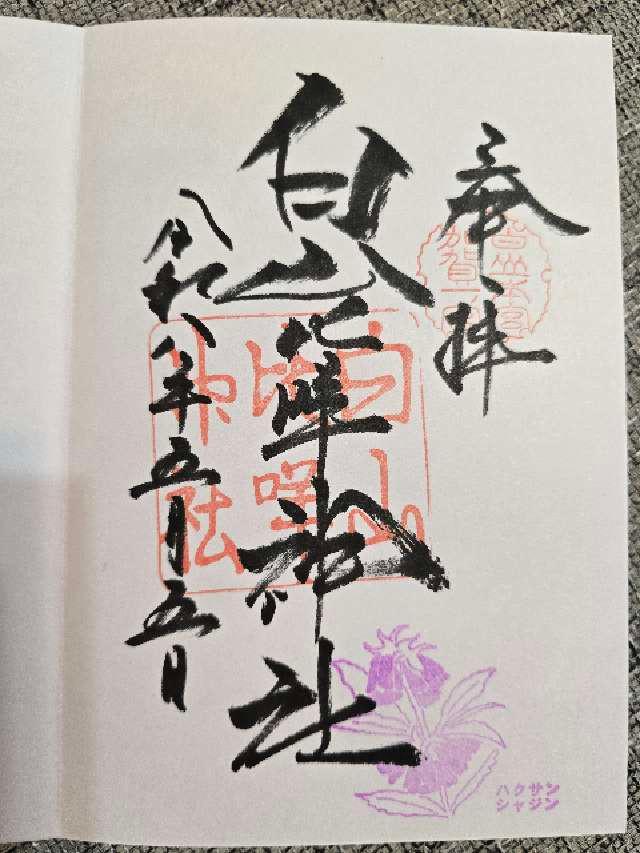 奉拝
白山本宮
加賀一ノ宮
白山比咩神社
白山
比咩
神社
令和八年五月五日
ハクサン
シャジン